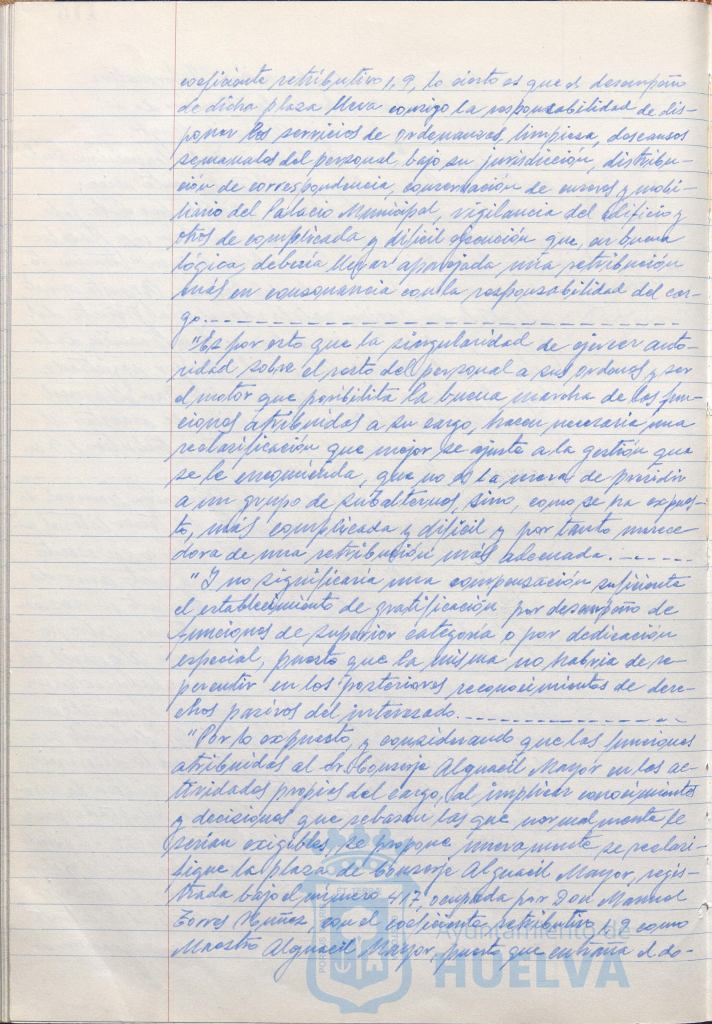 coeficiente retributivo 1,9, lo cierto es que el desempeño
de dicha plaza lleva consigo la responsabilidad de dis-
poner los servicios de ordenanzas, limpieza, descansos
semanales del personal bajo su jurisdicción, distribu-
ción de correspondencia, conservación de enseres y mobi-
liario del Palacio Municipal, vigilancia del edificio y
otros de complicada y difícil ejecución que, en buena
lógica, debería llevar aparejada una retribución
más en consonancia con la responsabilidad del car-
go.
"Es por esto que la singularidad de ejercer auto-
ridad sobre el resto del personal a sus ordenes y ser
el motor que posibilita la buena marcha de las fun-
ciones atribuidas a su cargo, hacen necesaria una
reclasificación que mejor se ajuste a la gestión que
se le encomienda, que no es la mera de presidir
a un grupo de subalternos, sino, como se ha expues-
to, más complicada y difícil y por tanto merece-
dora de una retribución más adecuada.
"Y no significaría una compensación suficiente
el establecimiento de gratificación por desempeño de
funciones de superior categoría o por dedicación
especial, puesto que la misma no habría de re-
percutir en los posteriores reconocimientos de dere-
chos pasivos del interesado.
"Por lo expuesto, y considerando que las funciones
atribuidas al Sr. Conserje Alguacil Mayor en las ac-
tividades propias del cargo, al implicar conocimientos
y decisiones que rebasan las que normalmente le
serían exigibles, se propone nuevamente se reclasi-
fique la plaza de Conserje Alguacil Mayor, regis-
trada bajo el número 417, ocupada por Don Manuel
Torres Nuñez, con el coeficiente retributivo 1,9 como
Maestro Alguacil Mayor, puesto que entraña el de-
Ayuntamiento de
HUELVA